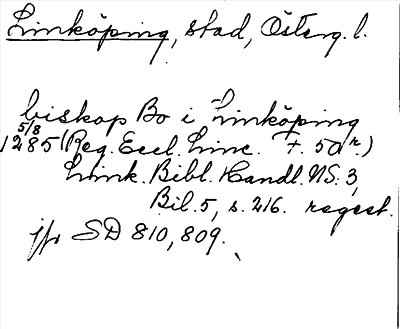 Linköping, stad, Österg. l.
biskop Bo i Linköping
5/8
1285 (Reg. Eccl. Linc. F. 50r.)
Link. Bibl. Handl. NS. 3,
Bil. 5, s. 216. regest.
jfr SD 810, 809.